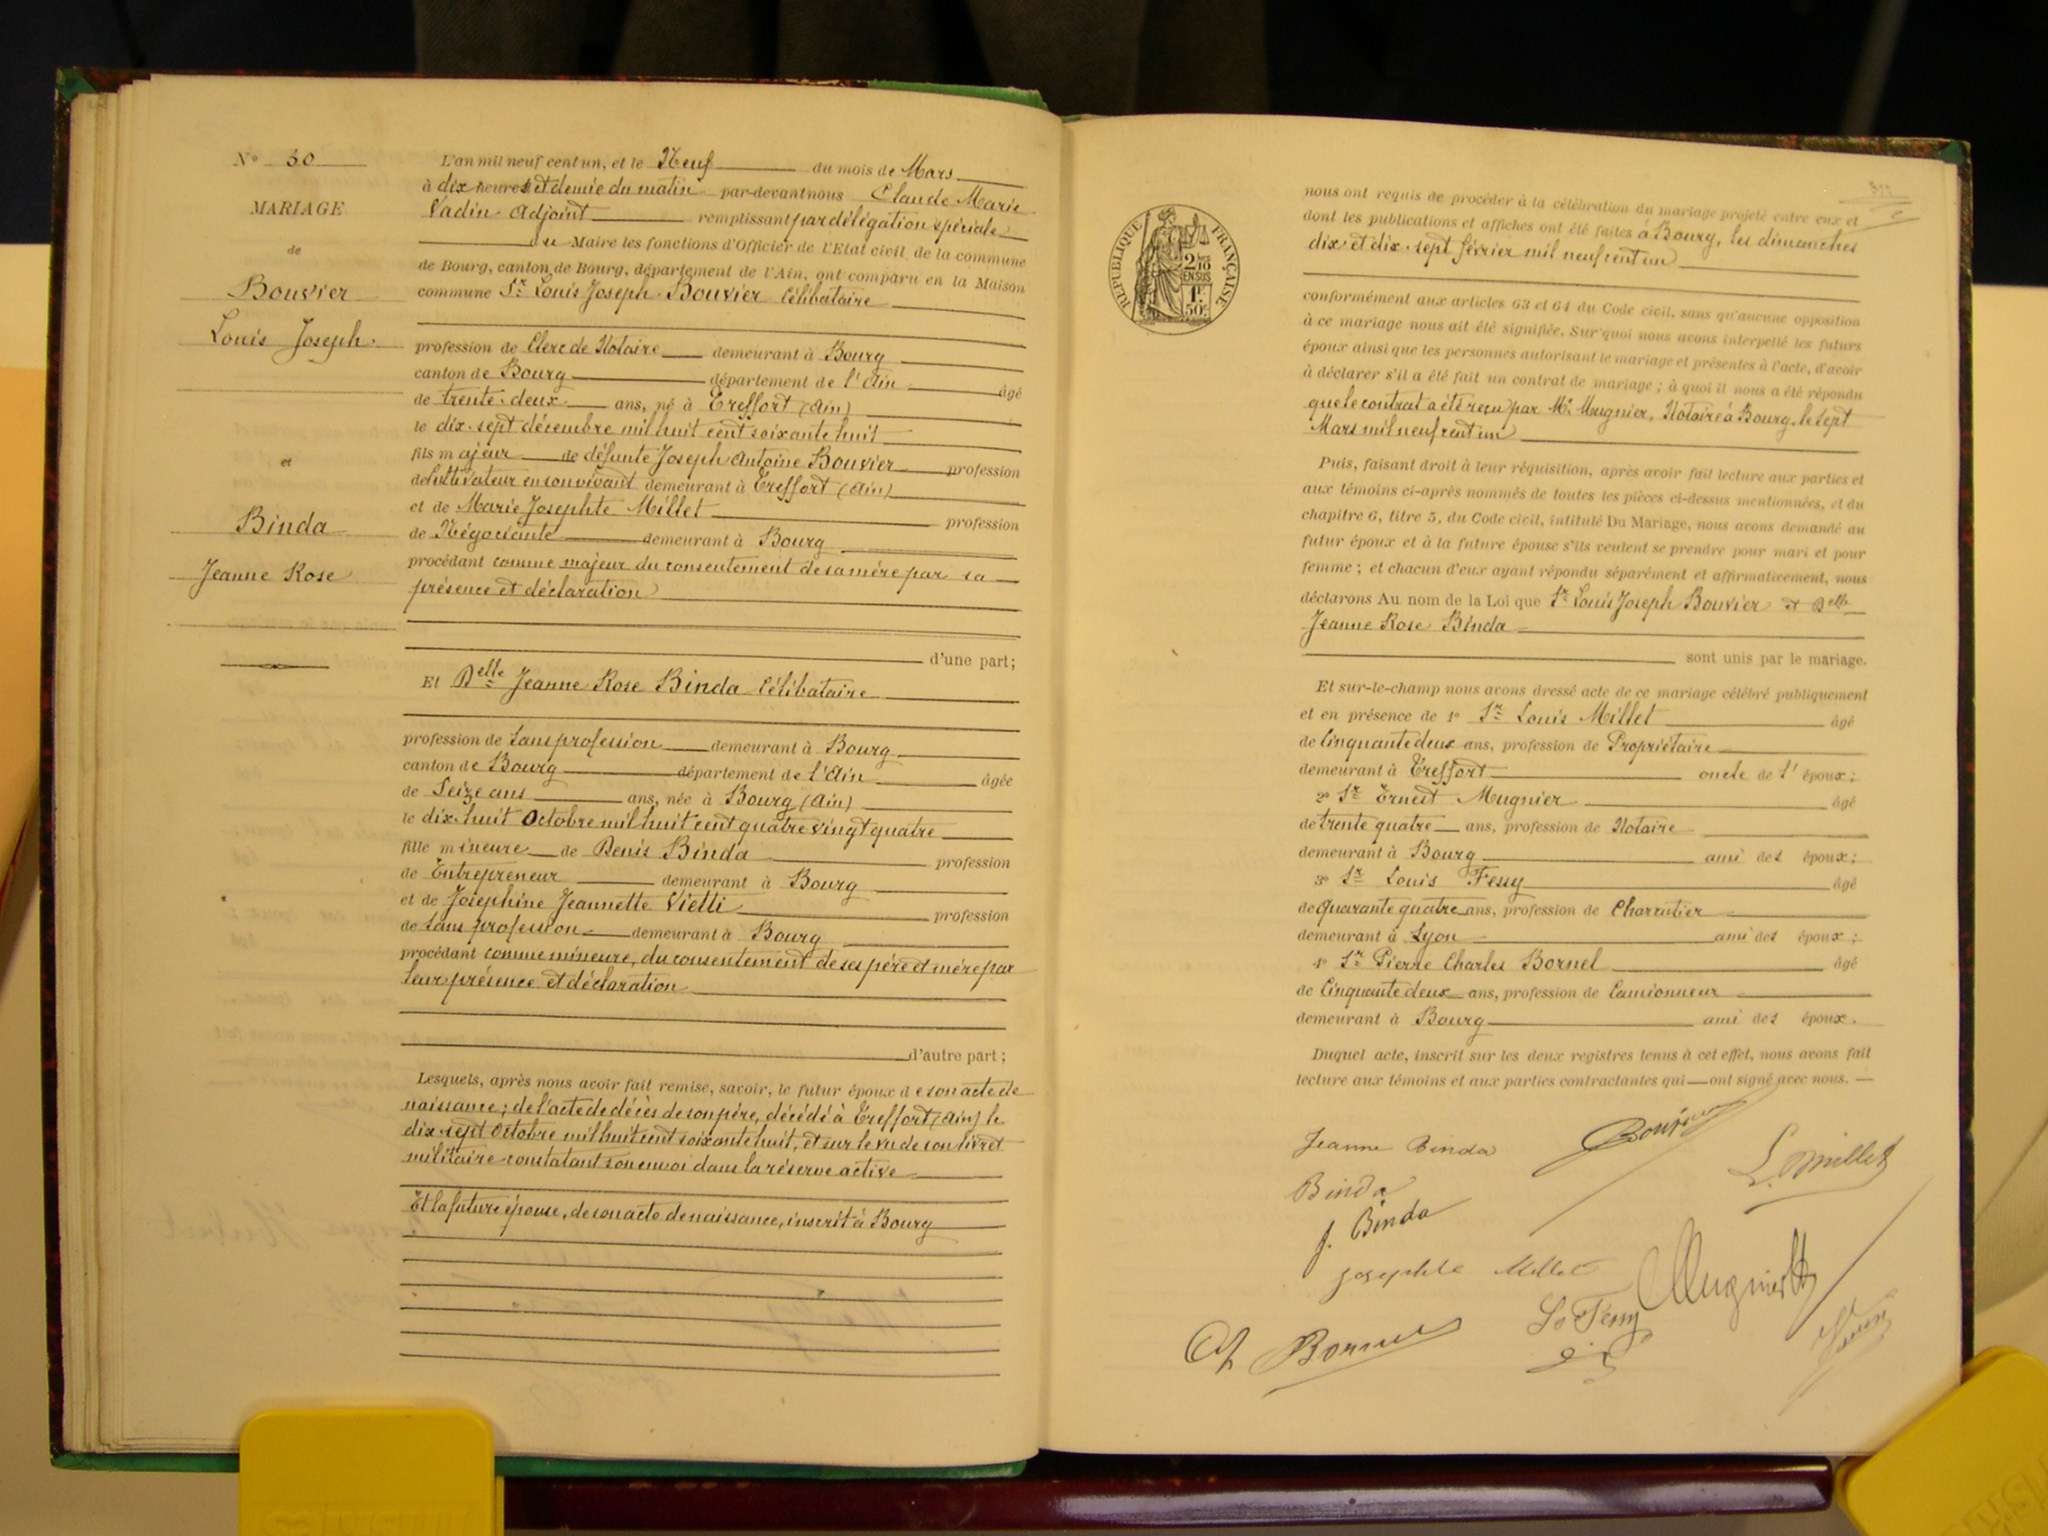 N° 30
MARIAGE
de
Bouvier
Louis Joseph
et
Binda
Jeanne Rose
L'an mil neuf cent un, et le Neuf du mois de Mars
à dix heures et demie du matin par-devant nous Claude Marie
Vadin Adjoint remplissant par délégation spéciale
du Maire les fonctions d'Officier de l'Etat civil de la commune
de Bourg, canton de Bourg, département de l'Ain, ont comparu en la Maison
commune Sr Louis Joseph Bouvier Célibataire
profession de Clerc de Notaire demeurant à Bourg
canton de Bourg département de l'Ain âgé
de trente-deux ans, né à Treffort (Ain)
le dix-sept décembre mil huit cent soixante huit
fils majeur de défunte Joseph Antoine Bouvier profession
de Cultivateur en son vivant demeurant à Treffort (Ain)
et de Marie Josephte Millet profession
de Négociante demeurant à Bourg
procédant comme majeur du consentement de sa mère par sa
présence et déclaration
d'une part;
Et Delle Jeanne Rose Binda Célibataire
profession de Sans profession demeurant à Bourg
canton de Bourg département de l'Ain âgée
de Seize ans ans, née à Bourg (Ain)
le dix-huit Octobre mil huit cent quatre vingt quatre
fille mineure de Denis Binda profession
de Entrepreneur demeurant à Bourg
et de Josephine Jeannette Vietti profession
de Sans profession demeurant à Bourg
procédant comme mineure, du consentement de ses père et mère par
leur présence et déclaration
d'autre part;
Lesquels, après nous avoir fait remise, savoir, le futur époux de son acte de
naissance; de l'acte de décès de son père, décédé à Treffort (Ain) le
dix-sept Octobre mil huit cent soixante huit, et sur le vu de son livret
militaire constatant son envoi dans la réserve active
Et la future épouse, de son acte de naissance, inscrit à Bourg
REPUBLIQUE FRANÇAISE
2/10
EN SUS
1F
50c
nous ont requis de procéder à la célébration du mariage projeté entre eux et
dont les publications et affiches ont été faites à Bourg, les dimanches
dix et dix-sept février mil neuf cent un
conformément aux articles 63 et 64 du Code civil, sans qu'aucune opposition
à ce mariage nous ait été signifiée. Sur quoi nous avons interpellé les futurs
époux ainsi que les personnes autorisant le mariage et présentes à l'acte, d'avoir
à déclarer s'il a été fait un contrat de mariage; à quoi il nous a été répondu
que le contrat a été reçu par Me Mugnier, Notaire à Bourg, le sept
Mars mil neuf cent un
Puis, faisant droit à leur réquisition, après avoir fait lecture aux parties et
aux témoins ci-après nommés de toutes les pièces ci-dessus mentionnées, et du
chapitre 6, titre 5, du Code civil, intitulé Du Mariage, nous avons demandé au
futur époux et à la future épouse s'ils veulent se prendre pour mari et pour
femme; et chacun d'eux ayant répondu séparément et affirmativement, nous
déclarons Au nom de la Loi que Sr Louis Joseph Bouvier et Delle
Jeanne Rose Binda
sont unis par le mariage.
Et sur-le-champ nous avons dressé acte de ce mariage célébré publiquement
et en présence de 1° Sr Louis Millet âgé
de Cinquante deux ans, profession de Propriétaire
demeurant à Treffort oncle de l'époux;
2° Sr Ernest Mugnier âgé
de trente quatre ans, profession de Notaire
demeurant à Bourg ami des époux;
3° Sr Louis Fessy âgé
de quarante quatre ans, profession de Charcutier
demeurant à Lyon ami des époux;
4° Sr Pierre Charles Bornel âgé
de Cinquante deux ans, profession de Camionneur
demeurant à Bourg ami des époux.
Duquel acte, inscrit sur les deux registres tenus à cet effet, nous avons fait
lecture aux témoins et aux parties contractantes qui — ont signé avec nous. —
Jeanne Binda
Bouvier
L. Millet
Binda
J. Binda
Josephte Millet
Mugnier
Ls Fessy
Ch Bornel
Vadin